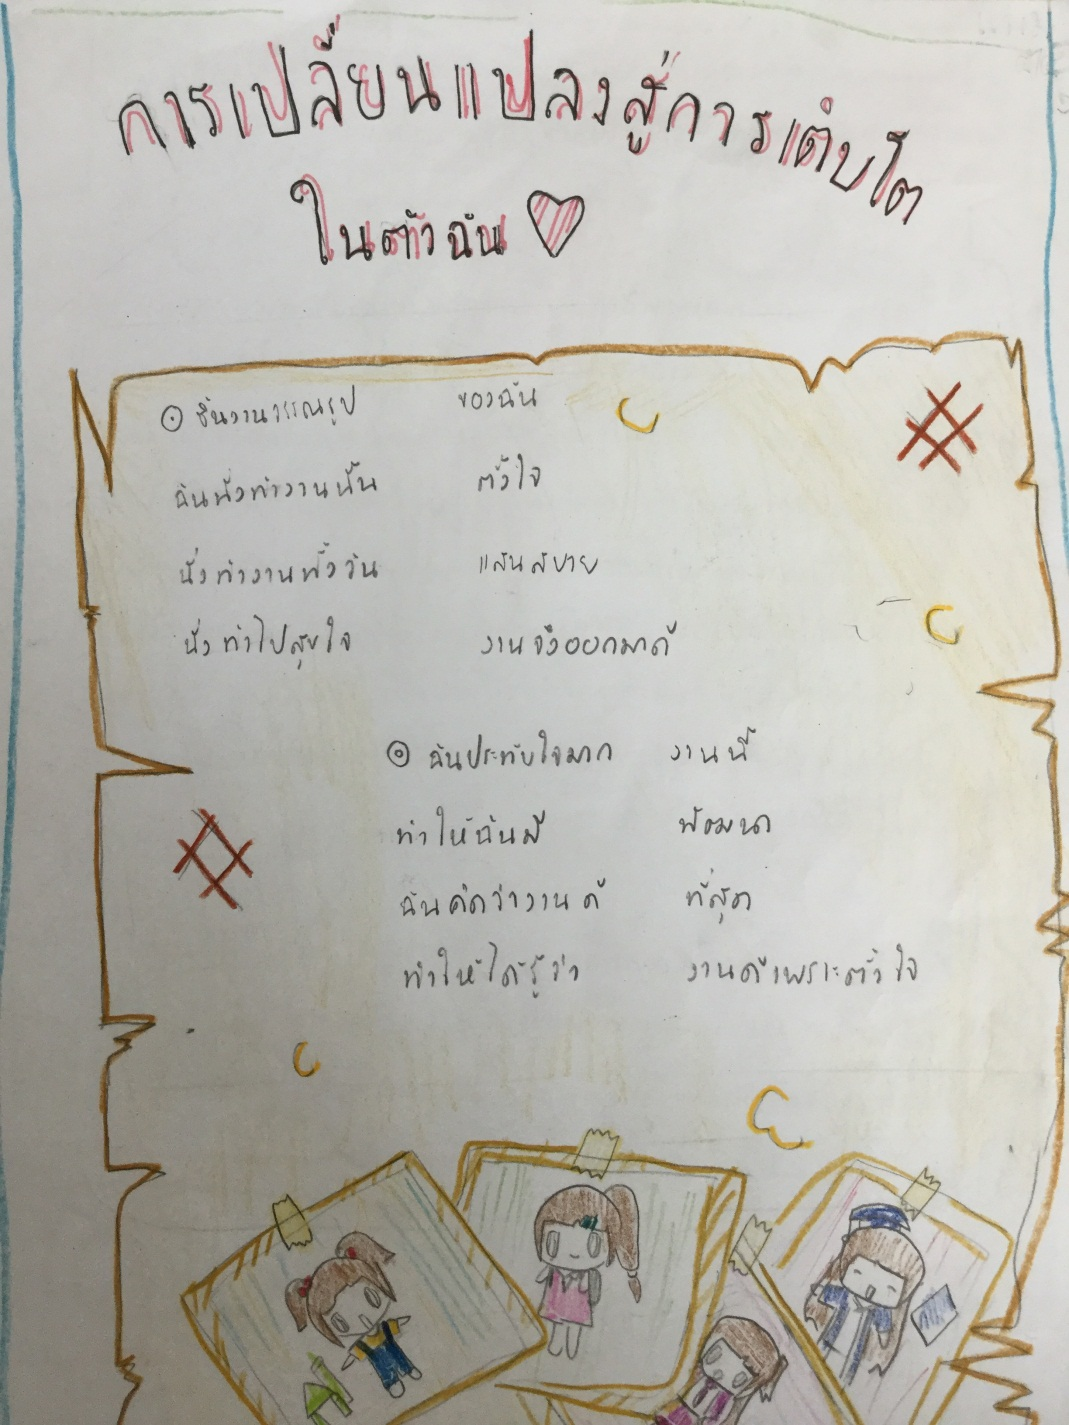 การเปลี้ยนแปลงสู่การเติบโต
ในตัวฉัน
ชิ้นงานวรรณรูป ของฉัน
ฉันนั่งทำงานนั้น ตั้งใจ
นั่งทำงานทั้งวัน แสนสบาย
นั่งทำไปสุขใจ งานจึงออกมาดี
ฉันประทับใจมาก งานนี้
ทำให้ฉันมี พัฒนา
ฉันคิดว่างานดี ที่สุด
ทำให้ได้รู้ว่า งานดีเพราะตั้งใจ